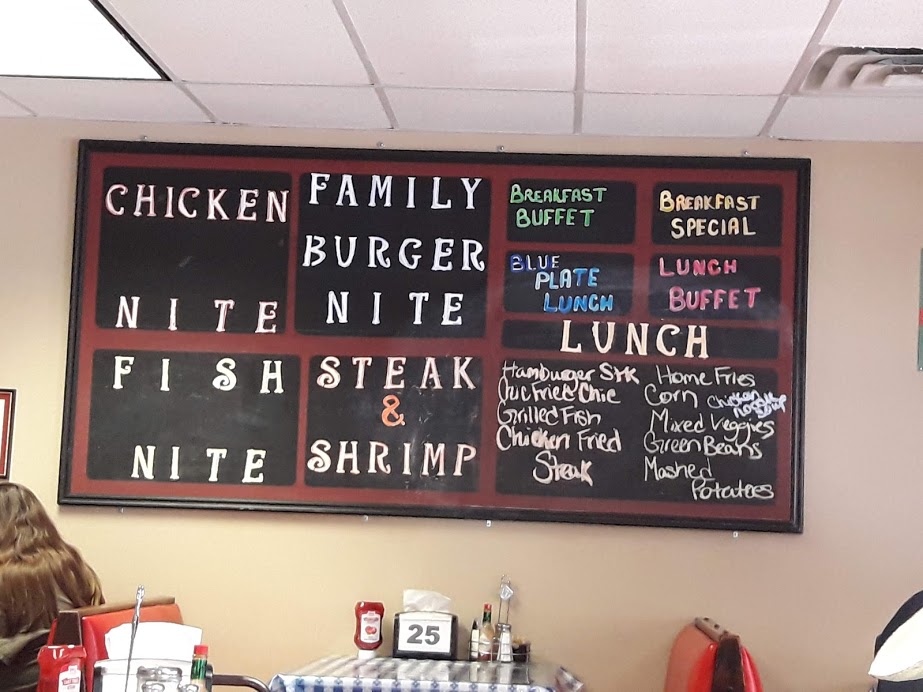 CHICKEN
NITE
FAMILY
BURGER
NITE
BREAKFAST
BUFFET
BREAKFAST
SPECIAL
BLUE
PLATE
LUNCH
LUNCH
BUFFET
LUNCH
FISH
NITE
STEAK
&
SHRIMP
Hamburger Stk
Fried Chic
Grilled Fish
Chicken Fried
Steak
Home Fries
Corn
Chicken
Noodle
Soup
Mixed Veggies
Green Beans
Mashed
Potatoes
25